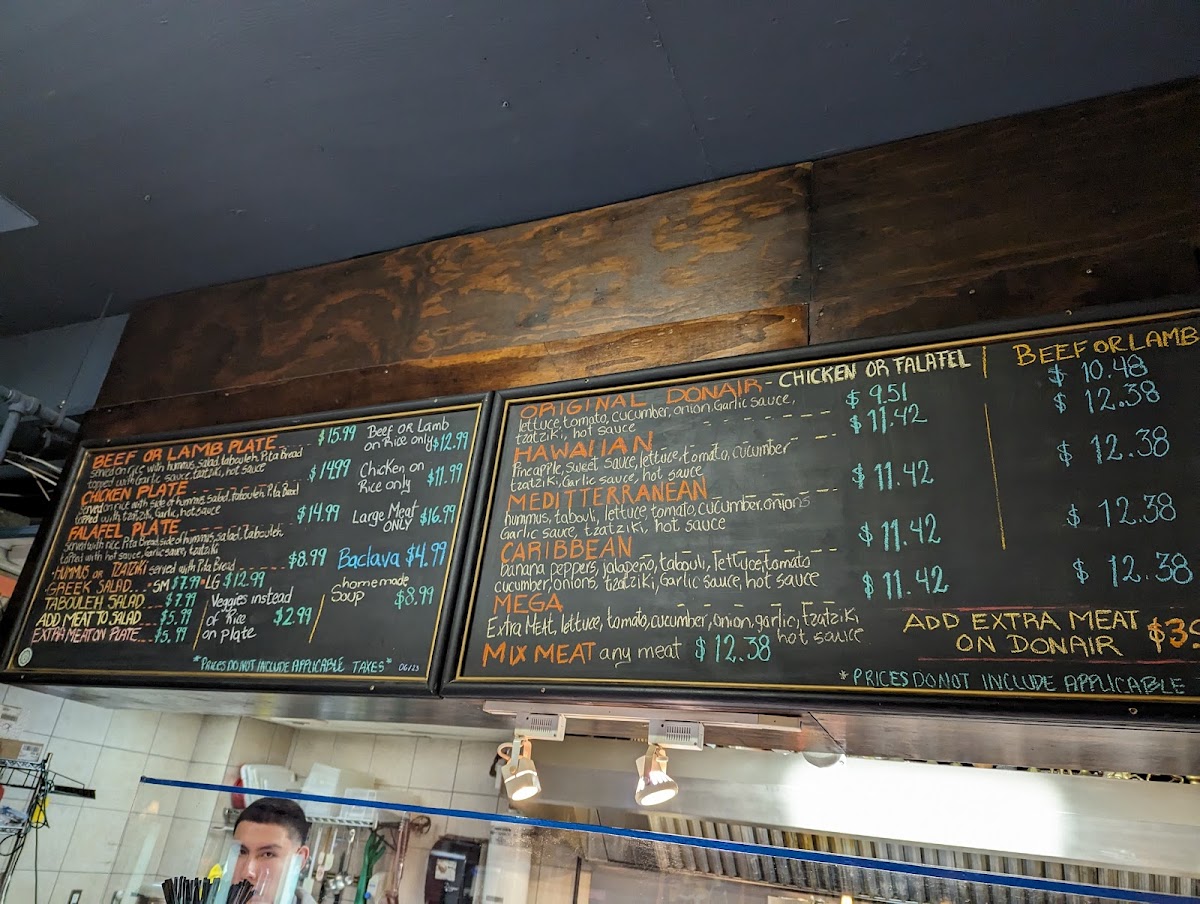 BEEF OR LAMB PLATE $15.99
served on rice with hummus, salad, tabouleh, Pita Bread
topped with Garlic sauce, tzatziki, hot sauce
CHICKEN PLATE $14.99
served on rice with side of hummus, salad, tabouleh, Pita Bread
topped with tzatziki, Garlic, hot sauce
FALAFEL PLATE $14.99
served with rice, Pita Bread side of hummus, salad, tabouleh,
topped with hot sauce, Garlic sauce, tzatziki
-HUMMUS or TZATZIKI served with Pita Bread $8.99
GREEK SALAD •SM $7.99 •LG $12.99
TABOULEH SALAD $7.99
ADD MEAT TO SALAD $5.99
EXTRA MEAT ON PLATE $5.99
Beef or Lamb
on Rice only $12.99
Chicken on
Rice only $11.99
Large Meat
ONLY $16.99
Baclava $4.99
Veggies instead
of Rice $2.99
on plate
homemade
Soup $8.99
*PRICES DO NOT INCLUDE APPLICABLE TAXES*
06/23
ORIGINAL DONAIR - CHICKEN OR FALAFEL | BEEF OR LAMB
$ 9.51 $ 10.48
lettuce, tomato, cucumber, onion, Garlic sauce,
tzatziki, hot sauce
HAWAIIAN $11.42 $ 12.38
Pineapple, sweet sauce, lettuce, tomato, cucumber
tzatziki, Garlic sauce, hot sauce
MEDITTERRANEAN $ 11.42 $ 12.38
hummus, tabouli, lettuce, tomato, cucumber, onions
Garlic sauce, tzatziki, hot sauce
CARIBBEAN $ 11.42 $ 12.38
banana peppers, jalapeño, tabouli, lettuce, tomato
cucumber, onions, tzatziki, Garlic sauce, hot sauce
MEGA $ 11.42 $ 12.38
Extra MEAT, lettuce, tomato, cucumber, onion, garlic, tzatziki
hot sauce
MIX MEAT any meat $ 12.38
ADD EXTRA MEAT
ON DONAIR
*PRICES DO NOT INCLUDE APPLICABLE